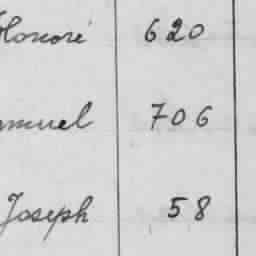 Honoré 620
muel 706
Joseph 58